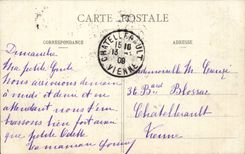 CARTE POSTALE
CORRESPONDANCE
ADRESSE
CHATELLERAULT
15 16
13
09
VIENNE
Dimanche
Ma petite
Nous arriverons demain
à midi et demi et en
attendant nous t'em
brassons bien fort ainsi
que petite Odette
Ta maman
Mademoiselle M.
36 Bard Blossac
Châtellerault
Vienne